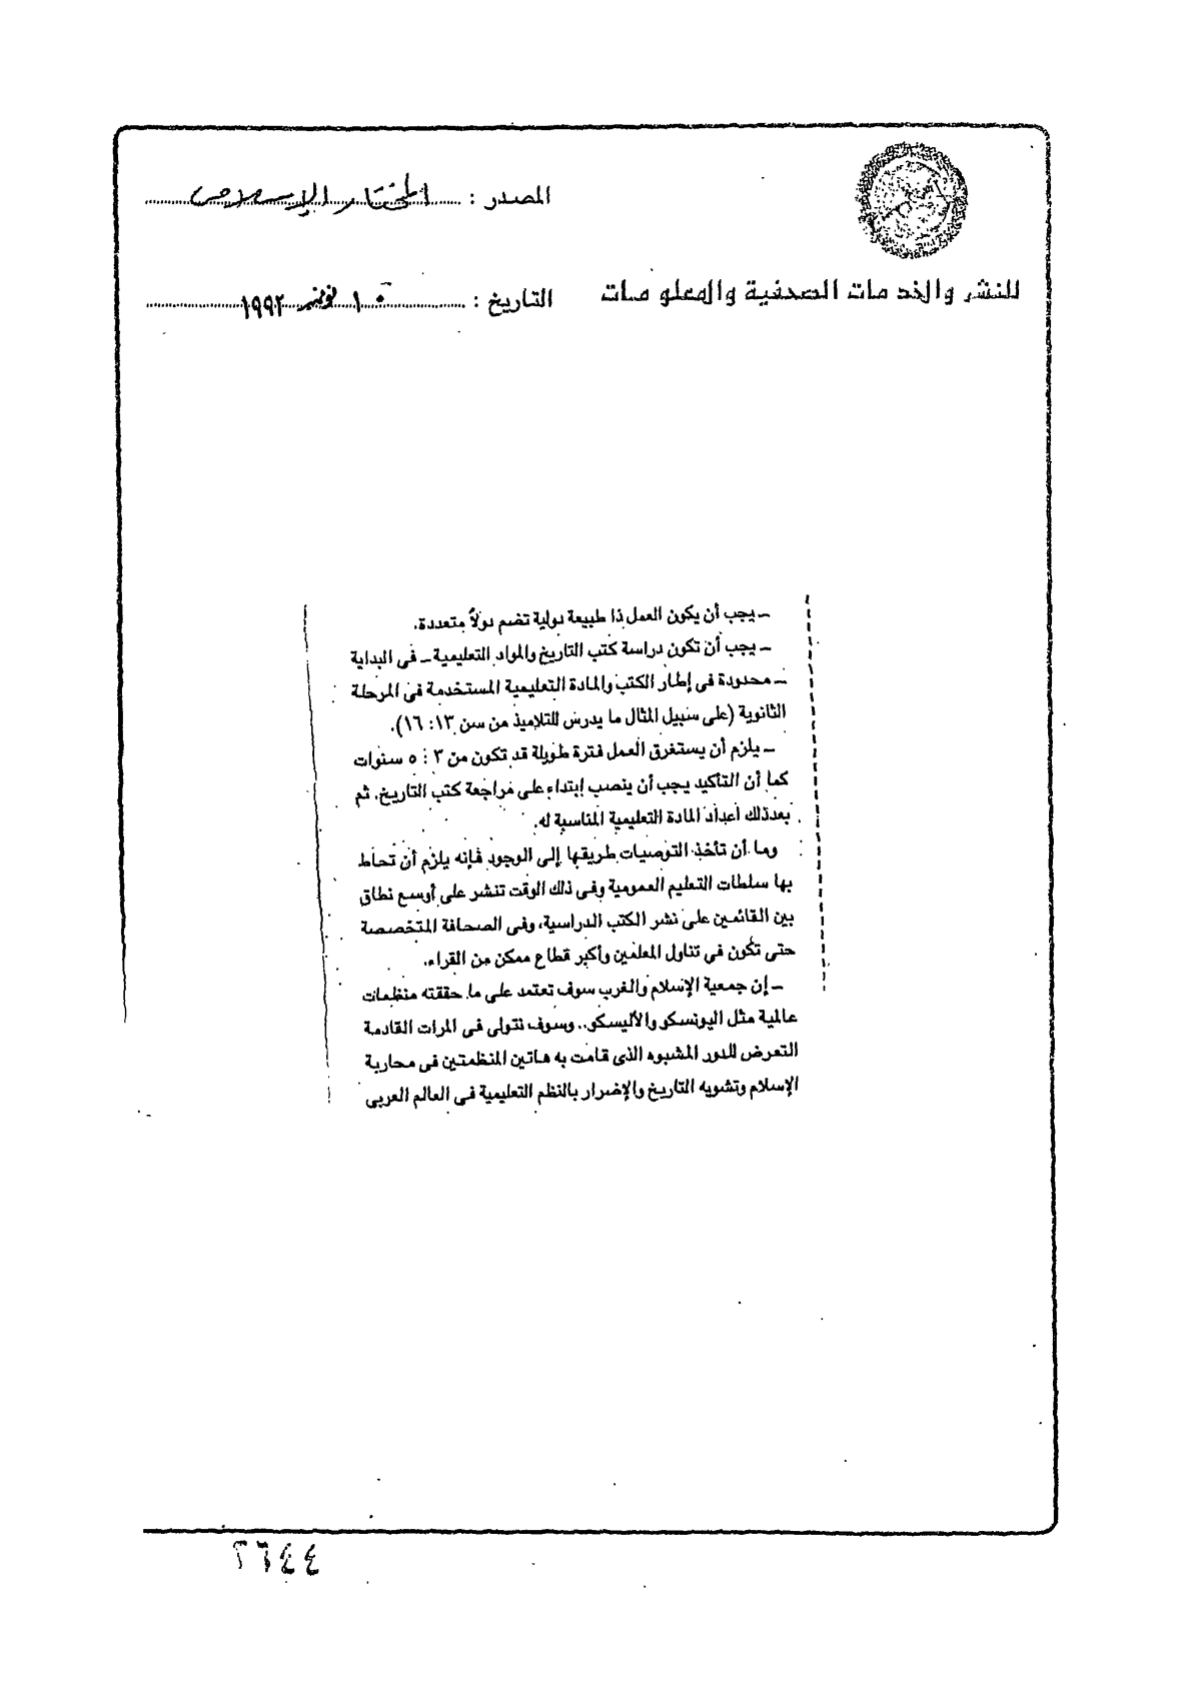 المصدر : المختار الإسلامى
للنشر والخدمات الصحفية والمعلومات
التاريخ : ١٠ نوفمبر ١٩٩٢
ـ يجب أن يكون العمل ذا طبيعة دولية تضم دولاً متعددة.
ـ يجب أن تكون دراسة كتب التاريخ والمواد التعليمية ـ فى البداية
ـ محدودة فى إطار الكتب والمادة التعليمية المستخدمة فى المرحلة
الثانوية (على سبيل المثال ما يدرس للتلاميذ من سن ١٣: ١٦).
ـ يلزم أن يستغرق العمل فترة طويلة قد تكون من ٣ : ٥ سنوات
كما أن التأكيد يجب أن ينصب إبتداء على مراجعة كتب التاريخ. ثم
بعدذلك أعداد المادة التعليمية المناسبة له.
وما أن تأخذ التوصيات طريقها إلى الوجود فإنه يلزم أن تحاط
بها سلطات التعليم العمومية وفى ذلك الوقت تنشر على أوسع نطاق
بين القائمين على نشر الكتب الدراسية، وفى الصحافة المتخصصة
حتى تكون فى تناول المعلمين وأكبر قطاع ممكن من القراء.
ـ إن جمعية الإسلام والغرب سوف تعتمد على ما حققته منظمات
عالمية مثل اليونسكو والأليسكو.. وسوف نتولى فى المرات القادمة
التعرض للدور المشبوه الذى قامت به هاتين المنظمتين فى محاربة
الإسلام وتشويه التاريخ والإضرار بالنظم التعليمية فى العالم العربى
٢٦٤٤